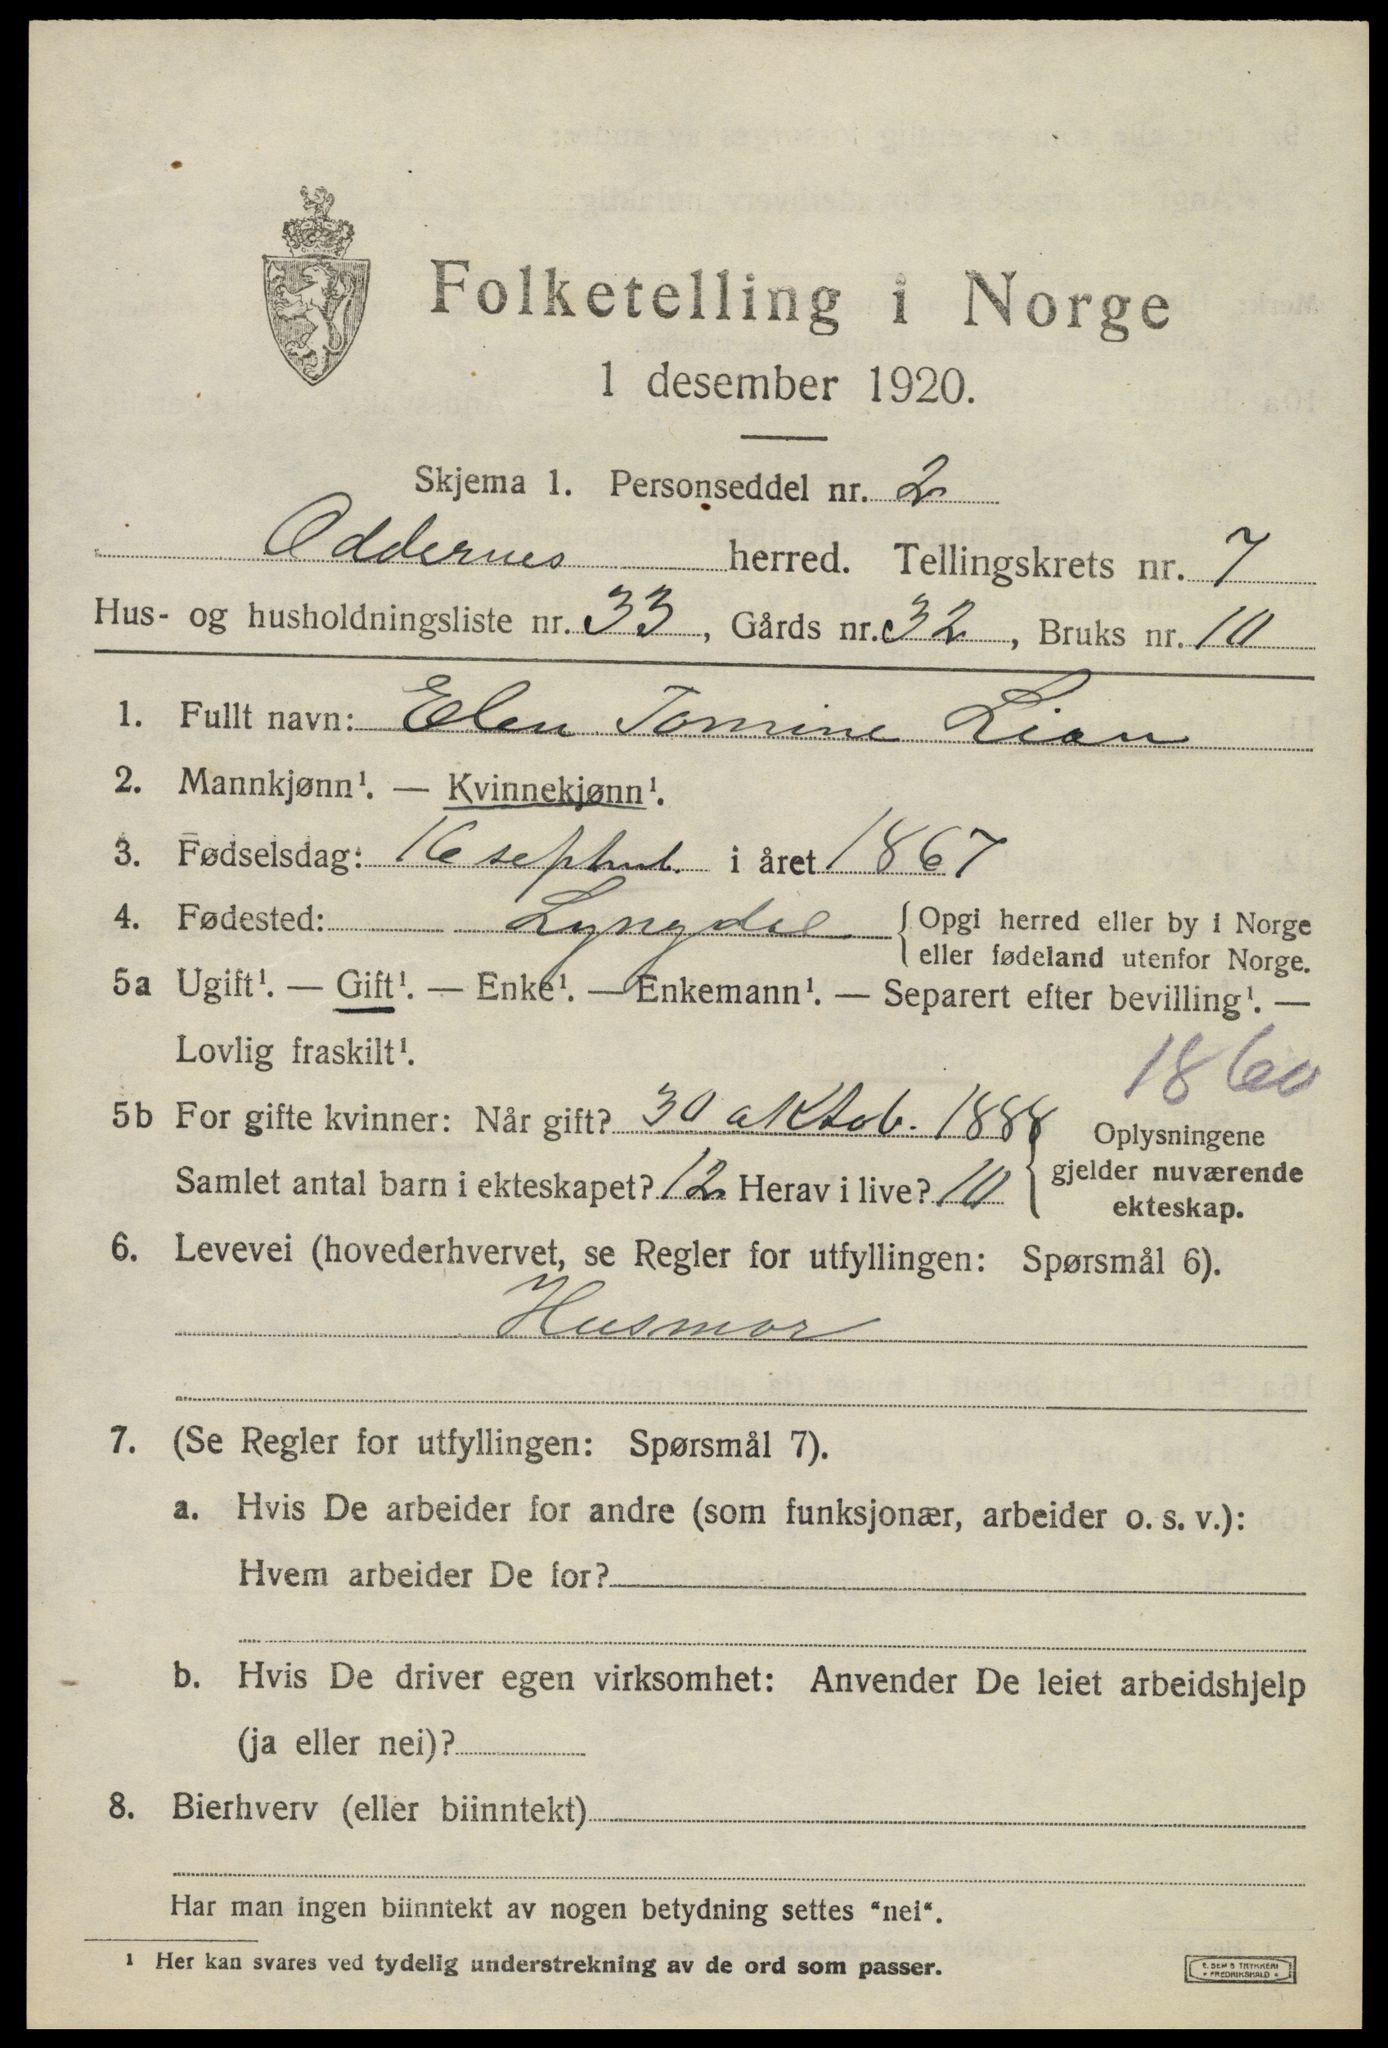 Folketelling i Norge
1 desember 1920.
Skjema 1. Personseddel nr. 2
Oddernes herred. Tellingskrets nr. 7
Hus- og husholdningsliste nr. 33, Gårds nr. 32, Bruks nr. 10
1. Fullt navn: Elen Tomine Lian
2. Mannkjønn¹. — Kvinnekjønn¹.
3. Fødselsdag: 16 septbr. i året 1867
4. Fødested: Lyngdal { Opgi herred eller by i Norge
eller fødeland utenfor Norge.
5a Ugift¹. — Gift¹. — Enke¹. — Enkemann¹. — Separert efter bevilling¹. —
Lovlig fraskilt¹.
1860
5b For gifte kvinner: Når gift? 30 aktob. 1888
Samlet antal barn i ekteskapet? 12 Herav i live? 10
{ Oplysningene
gjelder nuværende
ekteskap.
6. Levevei (hovederhvervet, se Regler for utfyllingen: Spørsmål 6).
Husmor
7. (Se Regler for utfyllingen: Spørsmål 7).
a. Hvis De arbeider for andre (som funksjonær, arbeider o. s. v.):
Hvem arbeider De for?
b. Hvis De driver egen virksomhet: Anvender De leiet arbeidshjelp
(ja eller nei)?
8. Bierhverv (eller biinntekt)
Har man ingen biinntekt av nogen betydning settes "nei".
¹ Her kan svares ved tydelig understrekning av de ord som passer.
E. SEM'S TRYKKERI
• FREDRIKSHALD •